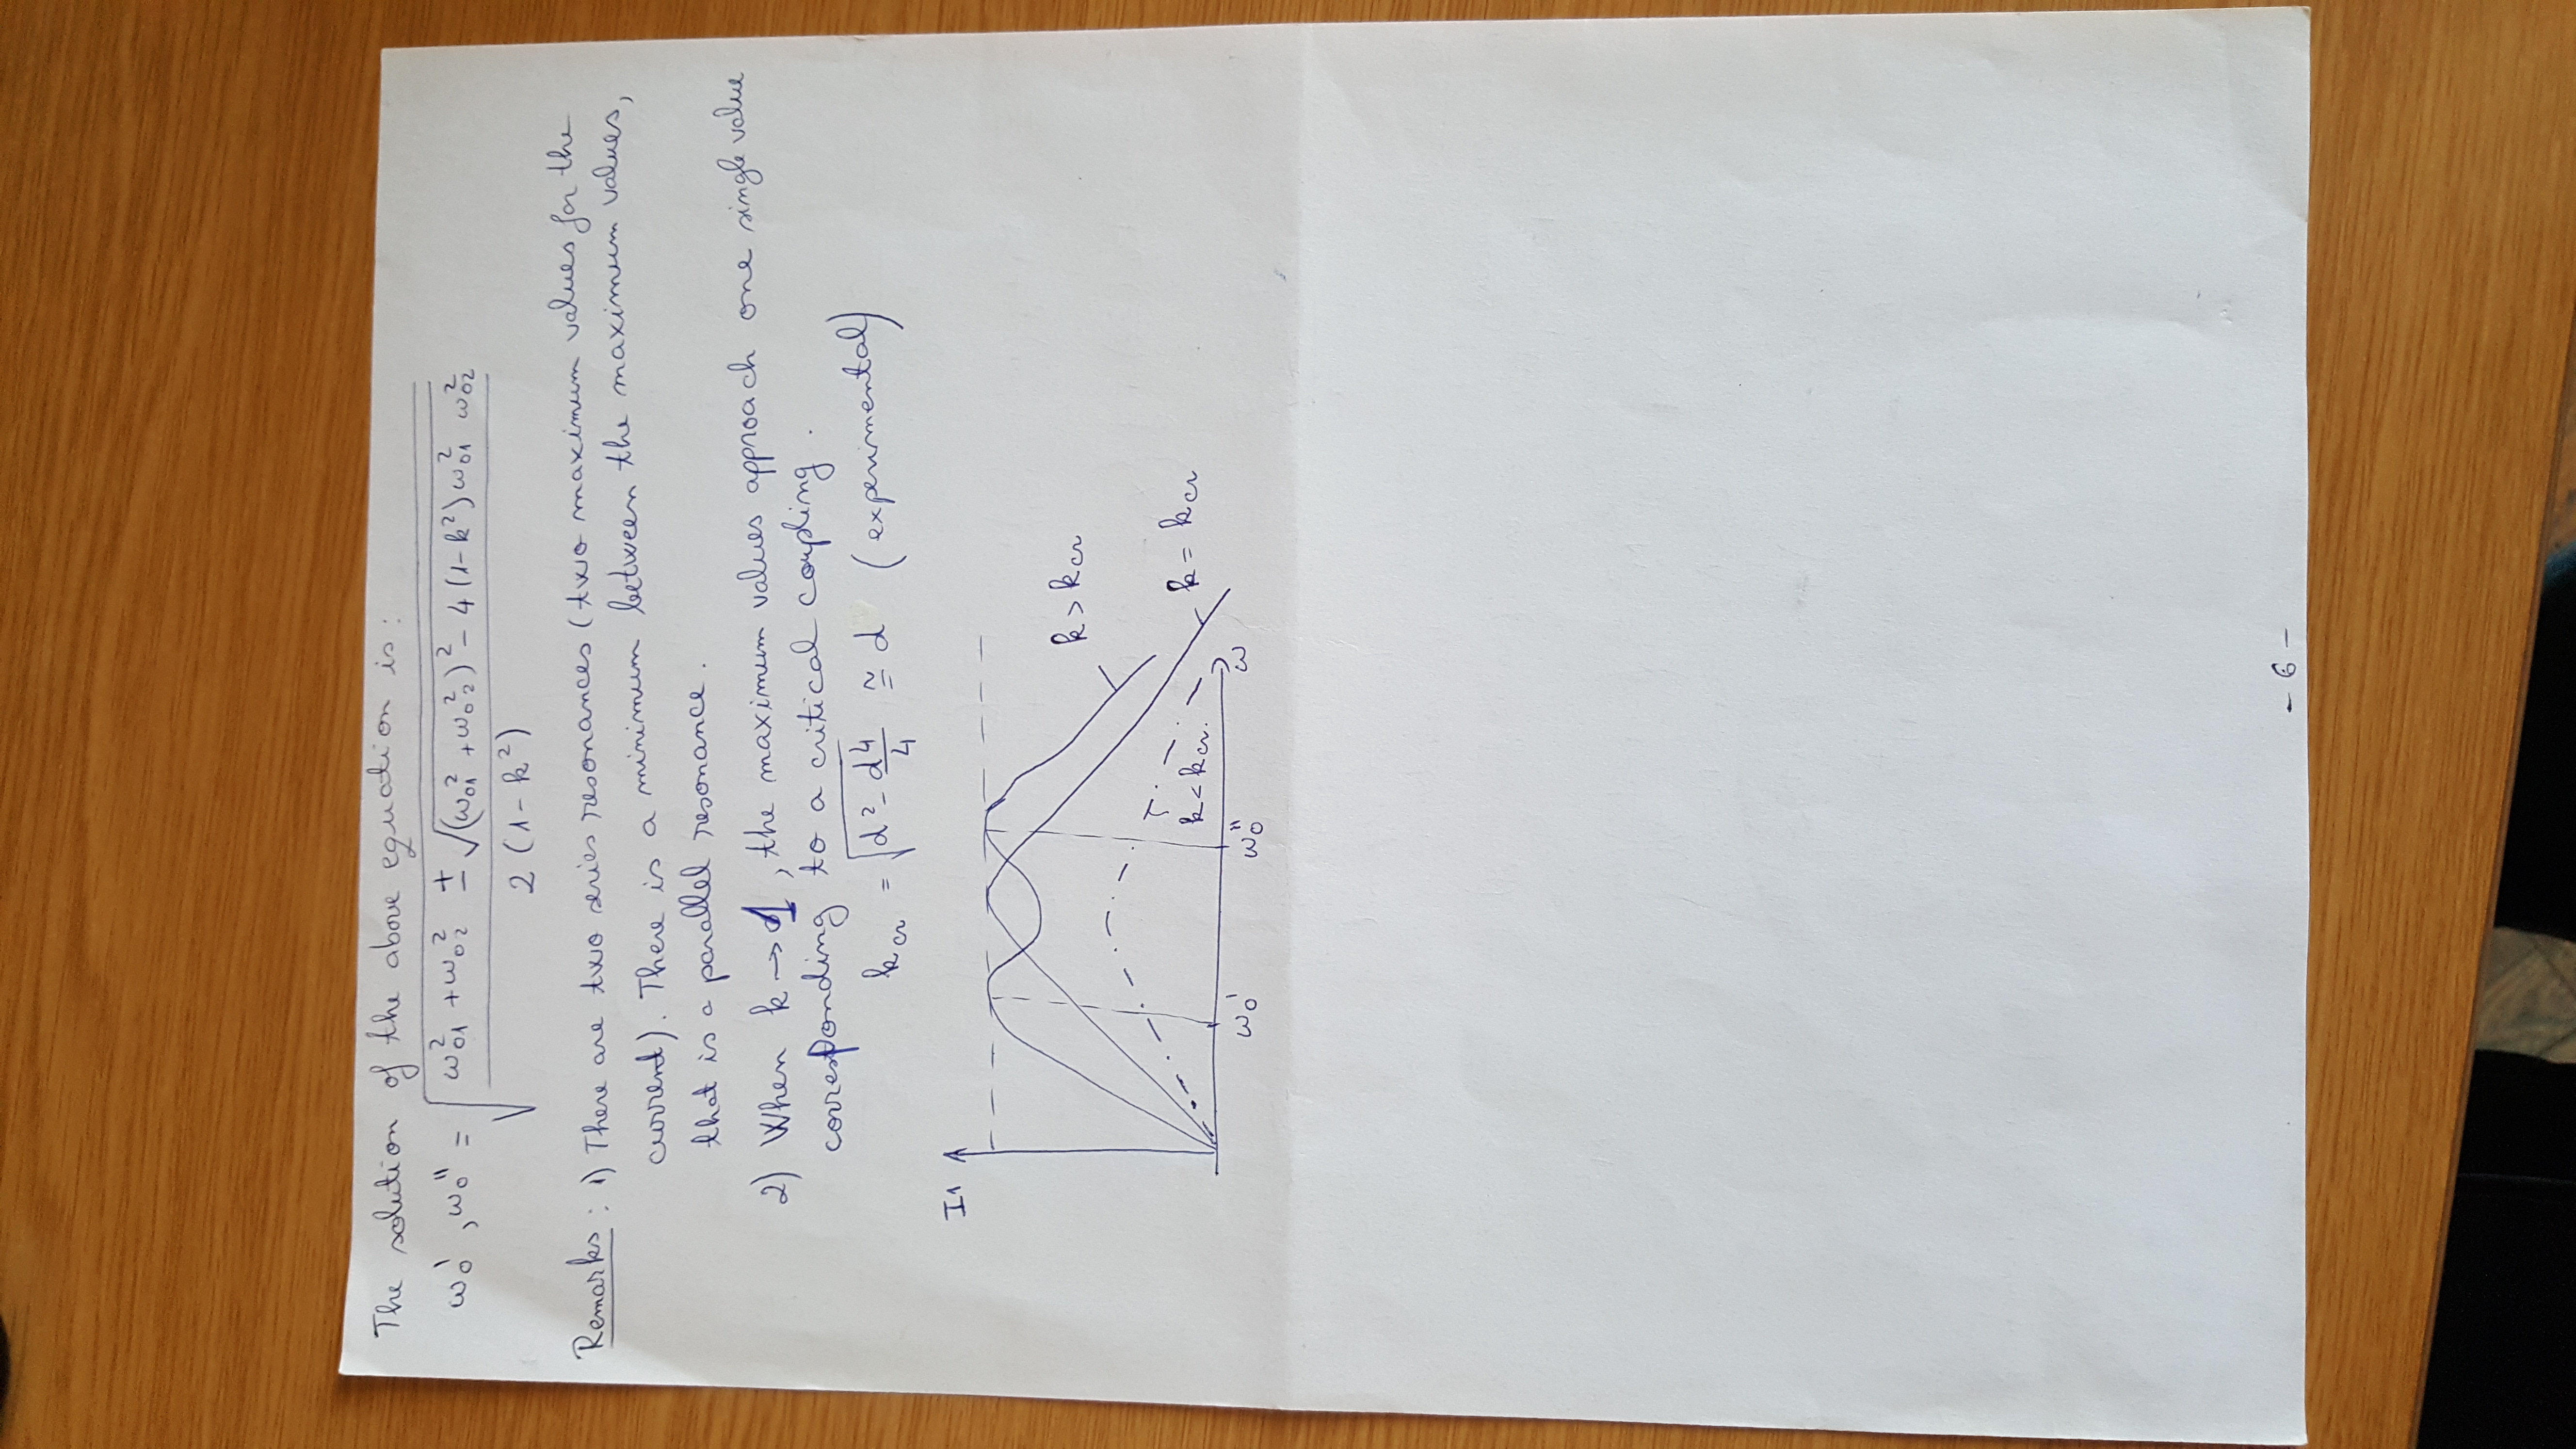 The solution of the above equation is:
ω₀', ω₀'' = √((ω₀₁² + ω₀₂² ± √((ω₀₁² + ω₀₂²)² - 4(1-k²)ω₀₁² ω₀₂²)) / (2(1-k²)))
Remarks: 1) There are two series resonances (two maximum values for the
current). There is a minimum between the maximum values,
that is a parallel resonance.
2) When k → 1, the maximum values approach one single value
corresponding to a critical coupling.
k_cr = √(d² - d⁴/4) ≅ d (experimental)
I1
k > k_cr
k = k_cr
k < k_cr
ω₀' ω₀'' ω
- 6 -